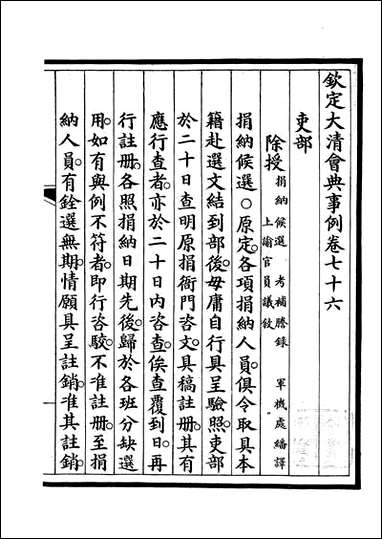 欽定大清會典事例卷七十六
吏部
除授捐納候選 考補謄錄 軍機處繙譯
上諭官員議敘
捐納候選○原定各項捐納人員俱令取具本
籍赴選文結到部後毋庸自行具呈驗照吏部
於二十日查明原捐衙門咨文具稿註冊其有
應行查者亦於二十日內咨查俟查覆到日再
行註冊各照捐納日期先後歸於各班分缺選
用如有與例不符者即行咨駁不准註冊至捐
納人員有銓選無期情願具呈註銷准其註銷